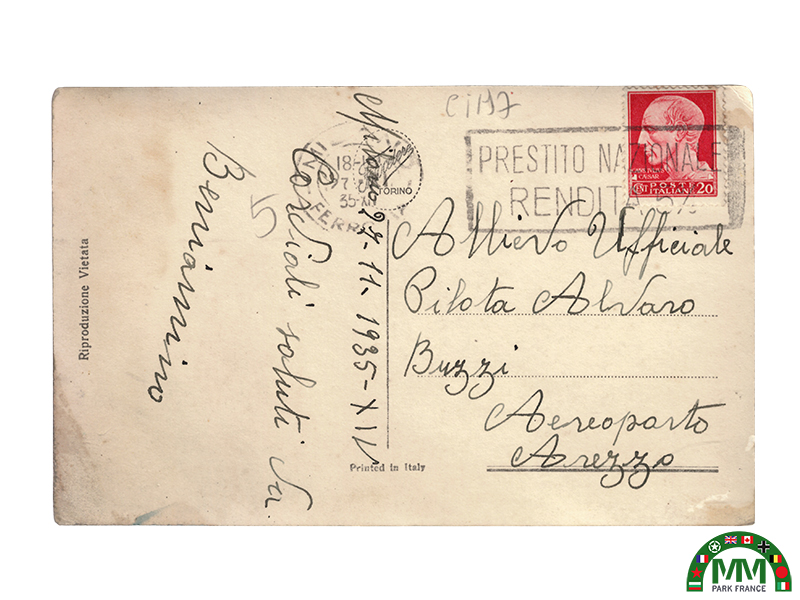 Ci 197
PRESTITO NAZIONALE
RENDITA 5%
POSTE
ITALIANE
CENT 20
CAESAR
18-
35-XIV
FERR
TORINO
5
Allievo Ufficiale
Pilota Alvaro
Buzzi
Aereoparto
Arezzo
Milano 27-11-1935-XIV
Cordiali saluti da
Beniamino
Riproduzione Vietata
Printed in Italy
MM
PARK FRANCE